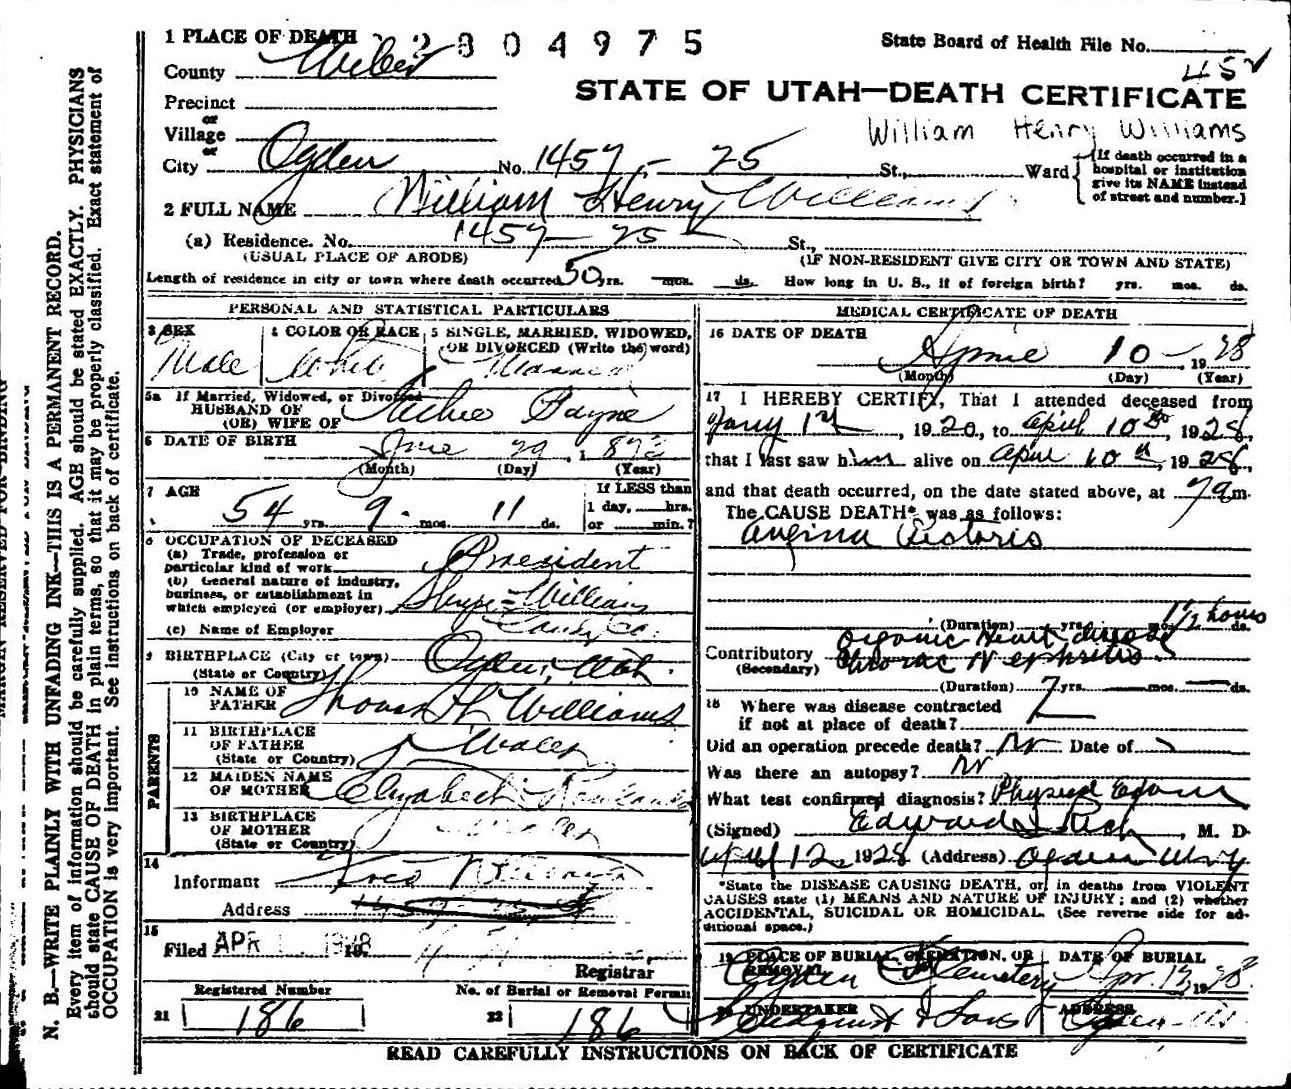 1 PLACE OF DEATH 2 8 0 4 9 7 5 State Board of Health File No.
County Weber 452
STATE OF UTAH—DEATH CERTIFICATE
Precinct
or
Village William Henry Williams
or
City Ogden No. 1457 - 25 St., Ward {If death occurred in a hospital or institution give its NAME instead of street and number.}
2 FULL NAME William Henry Williams
(a) Residence. No. 1457 - 25 St.,
(USUAL PLACE OF ABODE) (IF NON-RESIDENT GIVE CITY OR TOWN AND STATE)
Length of residence in city or town where death occurred 50 yrs. mos. ds. How long in U. S., if of foreign birth? yrs. mos. ds.
PERSONAL AND STATISTICAL PARTICULARS
3 SEX 4 COLOR OR RACE 5 SINGLE, MARRIED, WIDOWED,
OR DIVORCED (Write the word)
Male White Married
5a If Married, Widowed, or Divorced
HUSBAND OF
(OR) WIFE OF Payne
6 DATE OF BIRTH June 29, 1873
(Month) (Day) (Year)
7 AGE If LESS than
54 yrs. 9 mos. 11 ds. 1 day, hrs.
or min.?
8 OCCUPATION OF DECEASED
(a) Trade, profession or
particular kind of work President
(b) General nature of industry,
business, or establishment in
which employed (or employer) Williams
Candy Co.
(c) Name of Employer
9 BIRTHPLACE (City or town)
(State or Country) Ogden, Utah.
PARENTS
10 NAME OF
FATHER Thomas H. Williams
11 BIRTHPLACE
OF FATHER
(State or Country) Wales
12 MAIDEN NAME
OF MOTHER Elizabeth Rowlands
13 BIRTHPLACE
OF MOTHER
(State or Country) Wales
14
Informant
Address
15
Filed APR 1928 19
Registrar
Registered Number No. of Burial or Removal Permit
21 186 22 186
MEDICAL CERTIFICATE OF DEATH
16 DATE OF DEATH
April 10 - 1928
(Month) (Day) (Year)
17 I HEREBY CERTIFY, That I attended deceased from
Jany 1st, 1920, to April 10th, 1928,
that I last saw him alive on April 10th, 1928,
and that death occurred, on the date stated above, at 7 a m.
The CAUSE DEATH* was as follows:
Angina Pectoris
(Duration) yrs. mos. 1 1/2 hours ds.
Contributory Organic Heart disease
(Secondary) Chronic Nephritis
(Duration) 7 yrs. mos. ds.
18 Where was disease contracted
if not at place of death?
Did an operation precede death? No Date of
Was there an autopsy? No
What test confirmed diagnosis? Physical Exam
(Signed) Edward I Rich, M. D.
April 12, 1928 (Address) Ogden Utah
*State the DISEASE CAUSING DEATH, or, in deaths from VIOLENT
CAUSES state (1) MEANS AND NATURE OF INJURY; and (2) whether
ACCIDENTAL, SUICIDAL OR HOMICIDAL. (See reverse side for ad-
ditional space.)
19 PLACE OF BURIAL, CREMATION, OR REMOVAL DATE OF BURIAL
Ogden City Cemetery Apr. 13, 1928
20 UNDERTAKER ADDRESS
Lindquist & Sons Ogden Ut.
READ CAREFULLY INSTRUCTIONS ON BACK OF CERTIFICATE
MARGIN RESERVED FOR BINDING
N. B.—WRITE PLAINLY WITH UNFADING INK—THIS IS A PERMANENT RECORD.
Every item of information should be carefully supplied. AGE should be stated EXACTLY. PHYSICIANS
should state CAUSE OF DEATH in plain terms, so that it may be properly classified. Exact statement of
OCCUPATION is very important. See instructions on back of certificate.